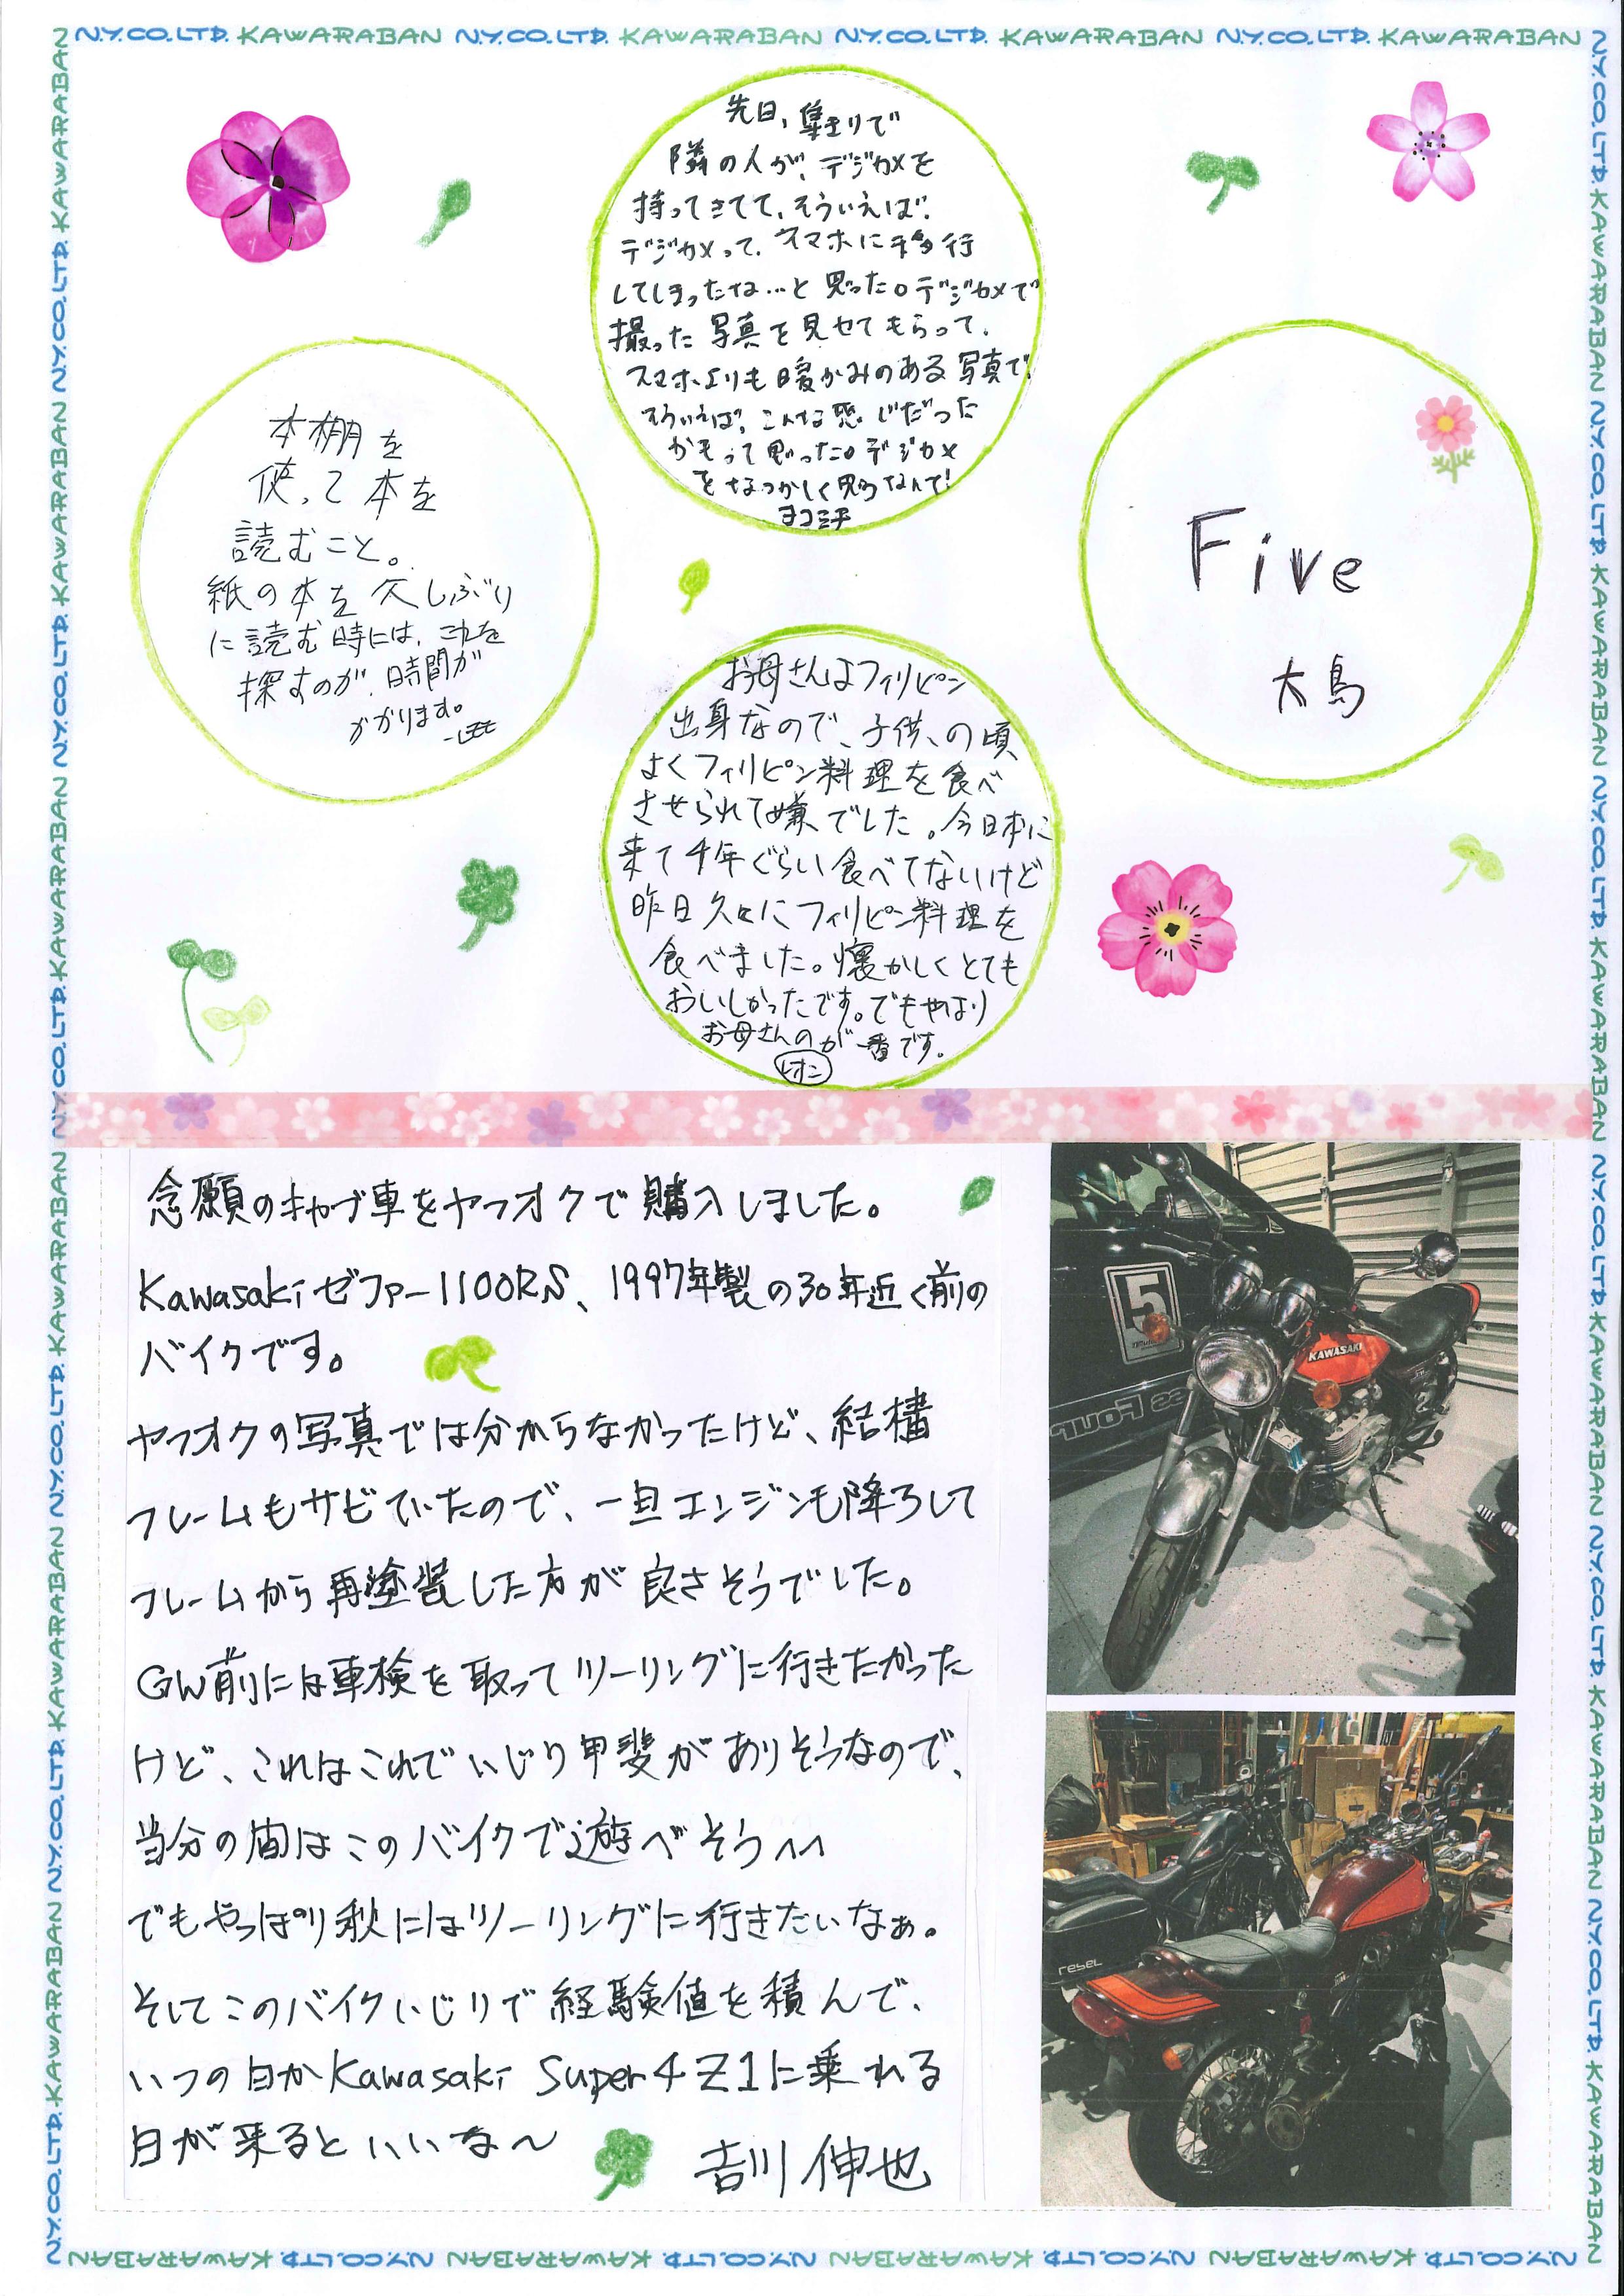 N.Y.CO.LTD. KAWARABAN N.Y.CO.LTD. KAWARABAN N.Y.CO.LTD. KAWARABAN N.Y.CO.LTD. KAWARABAN
先日、集まりで
隣の人が、デジカメを
持ってきてて、そういえば、
デジカメって、スマホに移行
してしまったな…と思った。デジカメで
撮った写真を見せてもらって、
スマホよりも暖かみのある写真で、
そういえば、こんな感じだった
かもって思った。デジカメ
をなつかしく思うなんて!
ヨコミチ
本棚を
使って本を
読むこと。
紙の本を久しぶり
に読む時には、これを
探すのが、時間が
かかります。
Five
大鳥
お母さんはフィリピン
出身なので、子供の頃
よくフィリピン料理を食べ
させられて嫌でした。今日本に
来て4年ぐらい食べてないけど
昨日久々にフィリピン料理を
食べました。懐かしくとても
おいしかったです。でもやはり
お母さんのが一番です。
レオニ
念願のキャブ車をヤフオクで購入しました。
Kawasakiゼファー1100RS、1997年製の30年近く前の
バイクです。
ヤフオクの写真では分からなかったけど、結構
フレームもサビていたので、一旦エンジンも降ろして
フレームから再塗装した方が良さそうでした。
GW前には車検を取ってツーリングに行きたかった
けど、これはこれでいじり甲斐がありそうなので、
当分の間はこのバイクで遊べそう^^
でもやっぱり秋にはツーリングに行きたいなぁ。
そしてこのバイクいじりで経験値を積んで、
いつの日かKawasaki Super4 Z1に乗れる
日が来るといいな〜
吉川伸也
5
KAWASAKI
rebel
N.Y.CO.LTD. KAWARABAN N.Y.CO.LTD. KAWARABAN N.Y.CO.LTD. KAWARABAN N.Y.CO.LTD. KAWARABAN